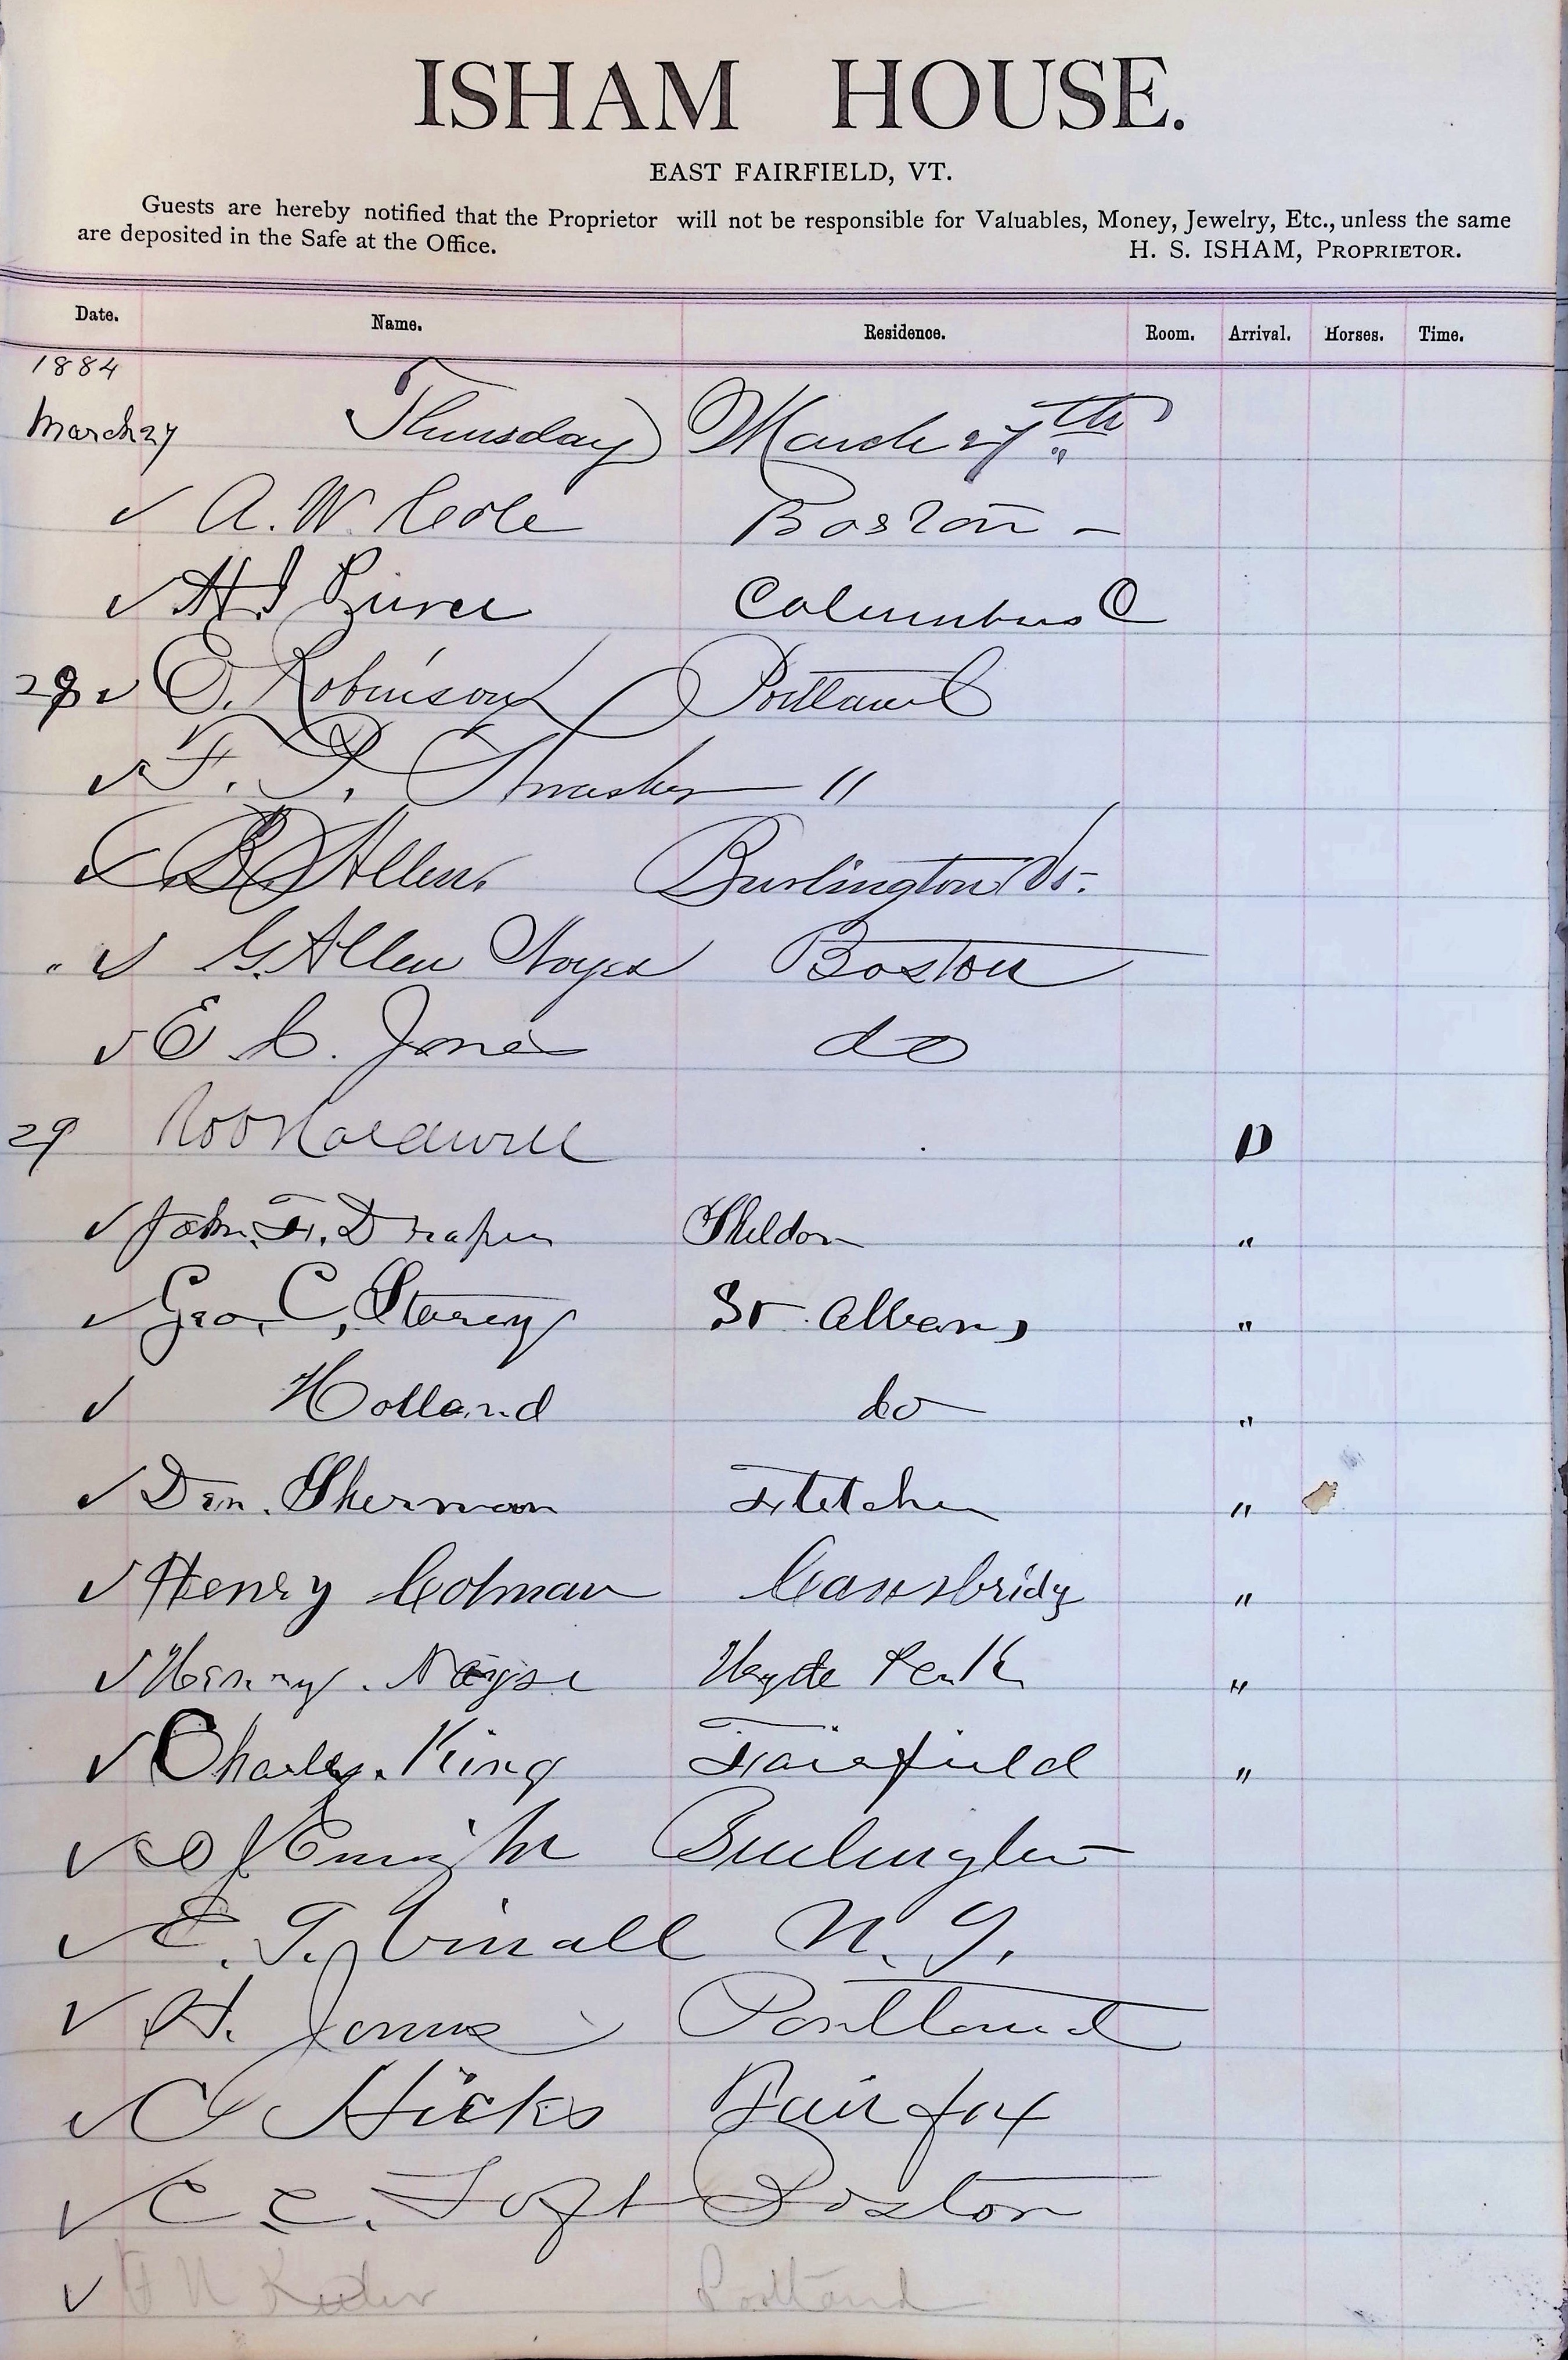 ISHAM HOUSE.
EAST FAIRFIELD, VT.
Guests are hereby notified that the Proprietor will not be responsible for Valuables, Money, Jewelry, Etc., unless the same
are deposited in the Safe at the Office. H. S. ISHAM, PROPRIETOR.
Date. Name. Residence. Room. Arrival. Horses. Time.
1884
March 27 Thursday March 27th
✓ A. W. Cole Boston —
✓ Columbus O
28 ✓ O. Robinson Portland
✓ F. P. Thrasher "
✓ Allen. Burlington Vt.
" ✓ G. Allen Noyes Boston
✓ E. C. Jones do
29 D
✓ John. F. Draper Sheldon "
✓ Geo. C, St Albans "
✓ Holland do "
✓ Dan. Sherman Fletcher "
✓ Henry Colman Cambridg "
✓ Henry. Hyde Park "
✓ Charley. King Fairfield "
✓ Burlington
✓ E. T. Vinall N. Y.
✓ H. Jones Portland
✓ Hicks Fairfax
✓ C. C. Toft Boston
✓ Portland